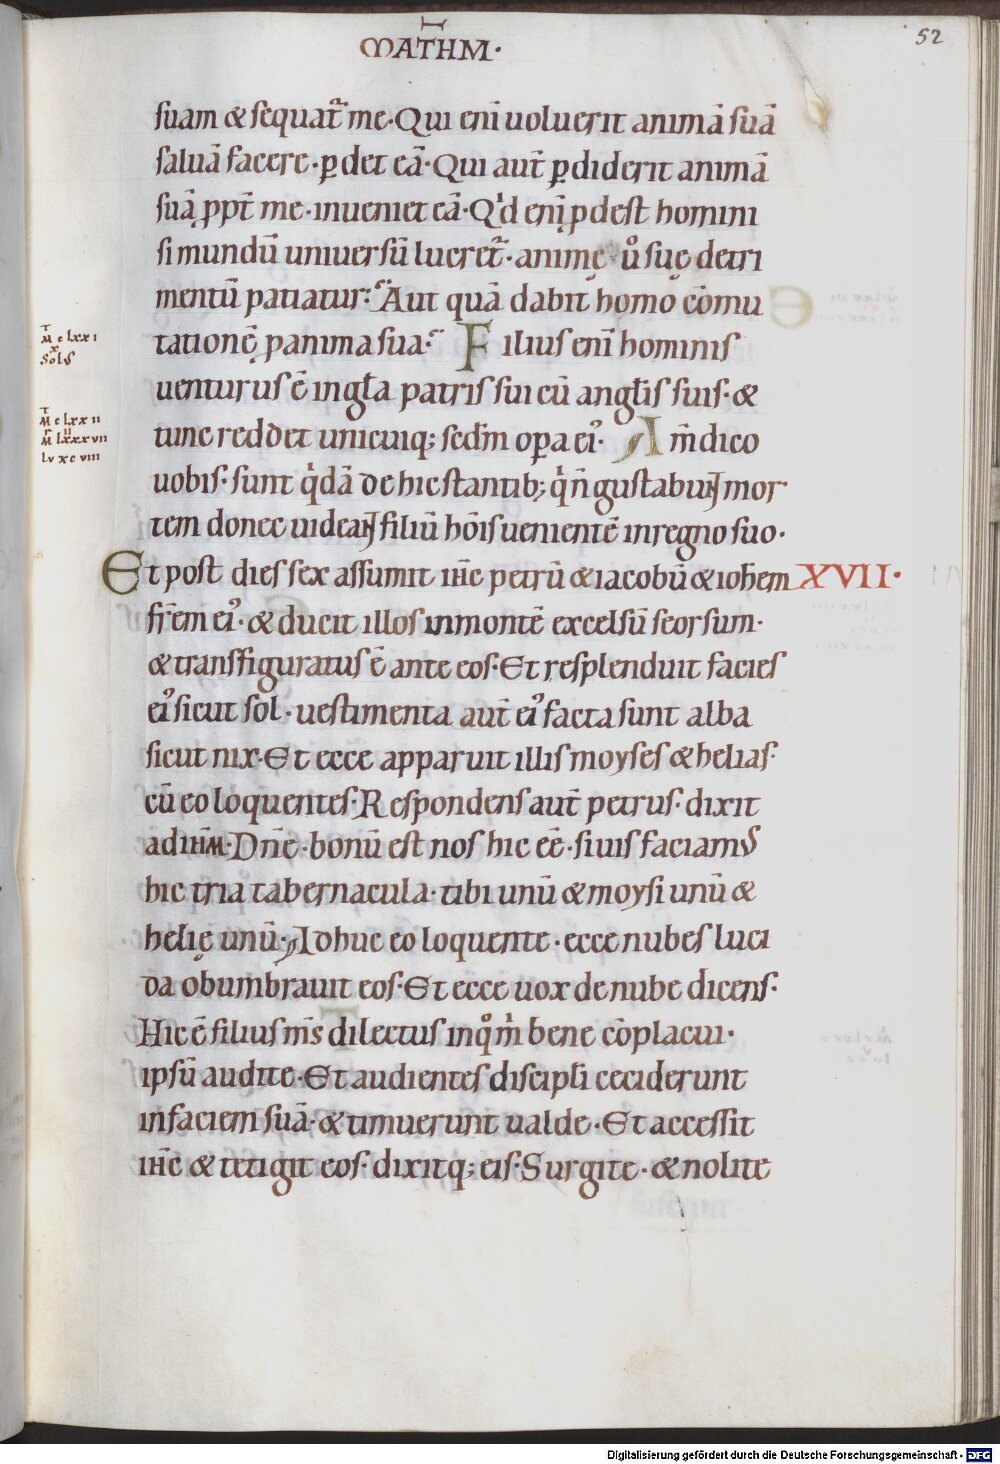 MATHM·
52
suam & sequat᷑ me· Qui eni̅ uoluerit animā suā
saluā facere· ꝑdet eā· Qui aut̅ ꝑdiderit animā
suā ꝓpt̅ me· inueniet eā· Qᵈ eni̅ ꝓdest homini
si mundū uniuersū lucret᷑· animę uͦ suę detri
mentū patiatur? Aut quā dabit homo cōmu
tationē ꝓ anima sua? Filius eni̅ hominis
T
M c lxxi
X
Sols
uenturus ē in gła patris sui cū angłis suis· &
tunc reddet unicuiq; scd̅m oꝑa ei᾽· Am̅ dico
T
M c lxx ii
R ii
M lxxxvii
Lv xc viii
uobis· sunt qͥdā de hic stantib; qͥ n̅ gustabunt mor
tem donec uideant filiū ho̅is uenientē in regno suo·
Et post dies sex assumit ih̅c petrū & iacobū & ioh̅em XVII·
fr̅em ei᾽· & ducit illos in montē excelsū seorsum·
& transfiguratus ē ante eos· Et resplenduit facies
ei᾽ sicut sol· uestimenta aut̅ ei᾽ facta sunt alba
sicut nix· Et ecce apparuit illis moyses & helias·
cū eo loquentes· Respondens aut̅ petrus· dixit
ad ih̅m· Dn̅e· bonū est nos hic eē· si uis faciamus
hic tria tabernacula· tibi unū & moysi unū &
helię unū· Adhuc eo loquente· ecce nubes luci
da obumbrauit eos· Et ecce uox de nube dicens·
Hic ē filius m̅s dilectus in qͦ mͥ bene cōplacui·
ipsū audite· Et audientes discipłi ceciderunt
in faciem suā· & timuerunt ualde· Et accessit
ih̅c & tetigit eos· dixitq; eis· Surgite· & nolite
Digitalisierung gefördert durch die Deutsche Forschungsgemeinschaft - DFG